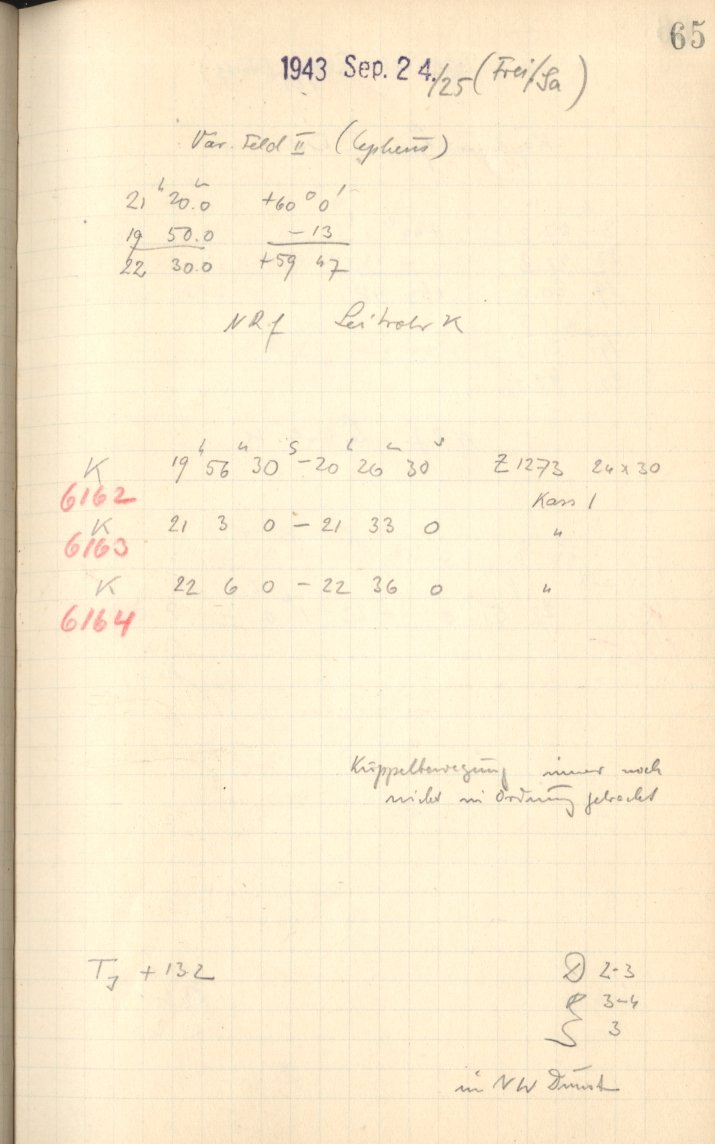 65
1943 Sep. 24./25 (Frei/Sa)
Var. Feld II (Cepheus)
21ʰ 20.0ᵐ +60° 0'
19 50.0 -13
22 30.0 +59 47
NRf Leitrohr K
K 19ʰ 56ᵐ 30ˢ - 20ʰ 26ᵐ 30ˢ Z 1273 24 x 30
6162 Kass 1
K 21 3 0 - 21 33 0 "
6163
K 22 6 0 - 22 36 0 "
6164
Kuppelbewegung immer noch
nicht in Ordnung gebracht
+13.2
2-3
3-4
3
in NW Dunst